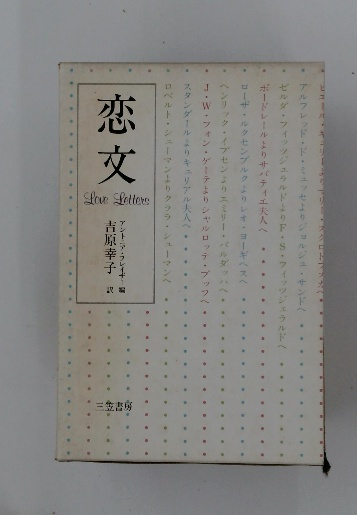 アルフレッド・ド・ミュッセよりジョルジュ・サンドへ
ゼルダ・フィッツジェラルドよりF・S・フィッツジェラルドへ
ボードレールよりサバティエ夫人へ
ローザ・ルクセンブルクよりレオ・ヨーギヘスへ
ヘンリック・イプセンよりエミリー・バルダッハへ
J・W・フォン・ゲーテよりシャルロッテ・ブッフへ
スタンダールよりキュリアル夫人へ
ロベルト・シューマンよりクララ・シューマンへ
恋文
Love Letters
アントニア・フレイザー 編
吉原幸子 訳
三笠書房